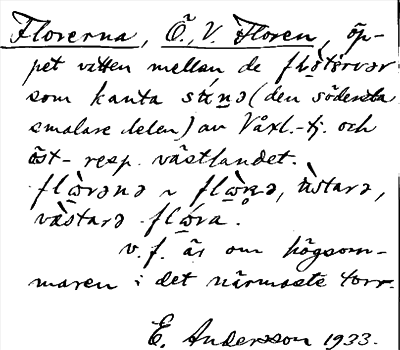 Florerna, Ö., V. Floren, öp-
pet vatten mellan de flötərvər
som kanta stənə (den södersta
smalare delen) av Växl.-tj. och
öst- resp. västlandet.
flὼrənə ~ flὼrɳə, ùstarə,
væ̀starə flὼra.
v. f. är om högsom-
maren i det närmaste torr.
E. Andersson 1933.